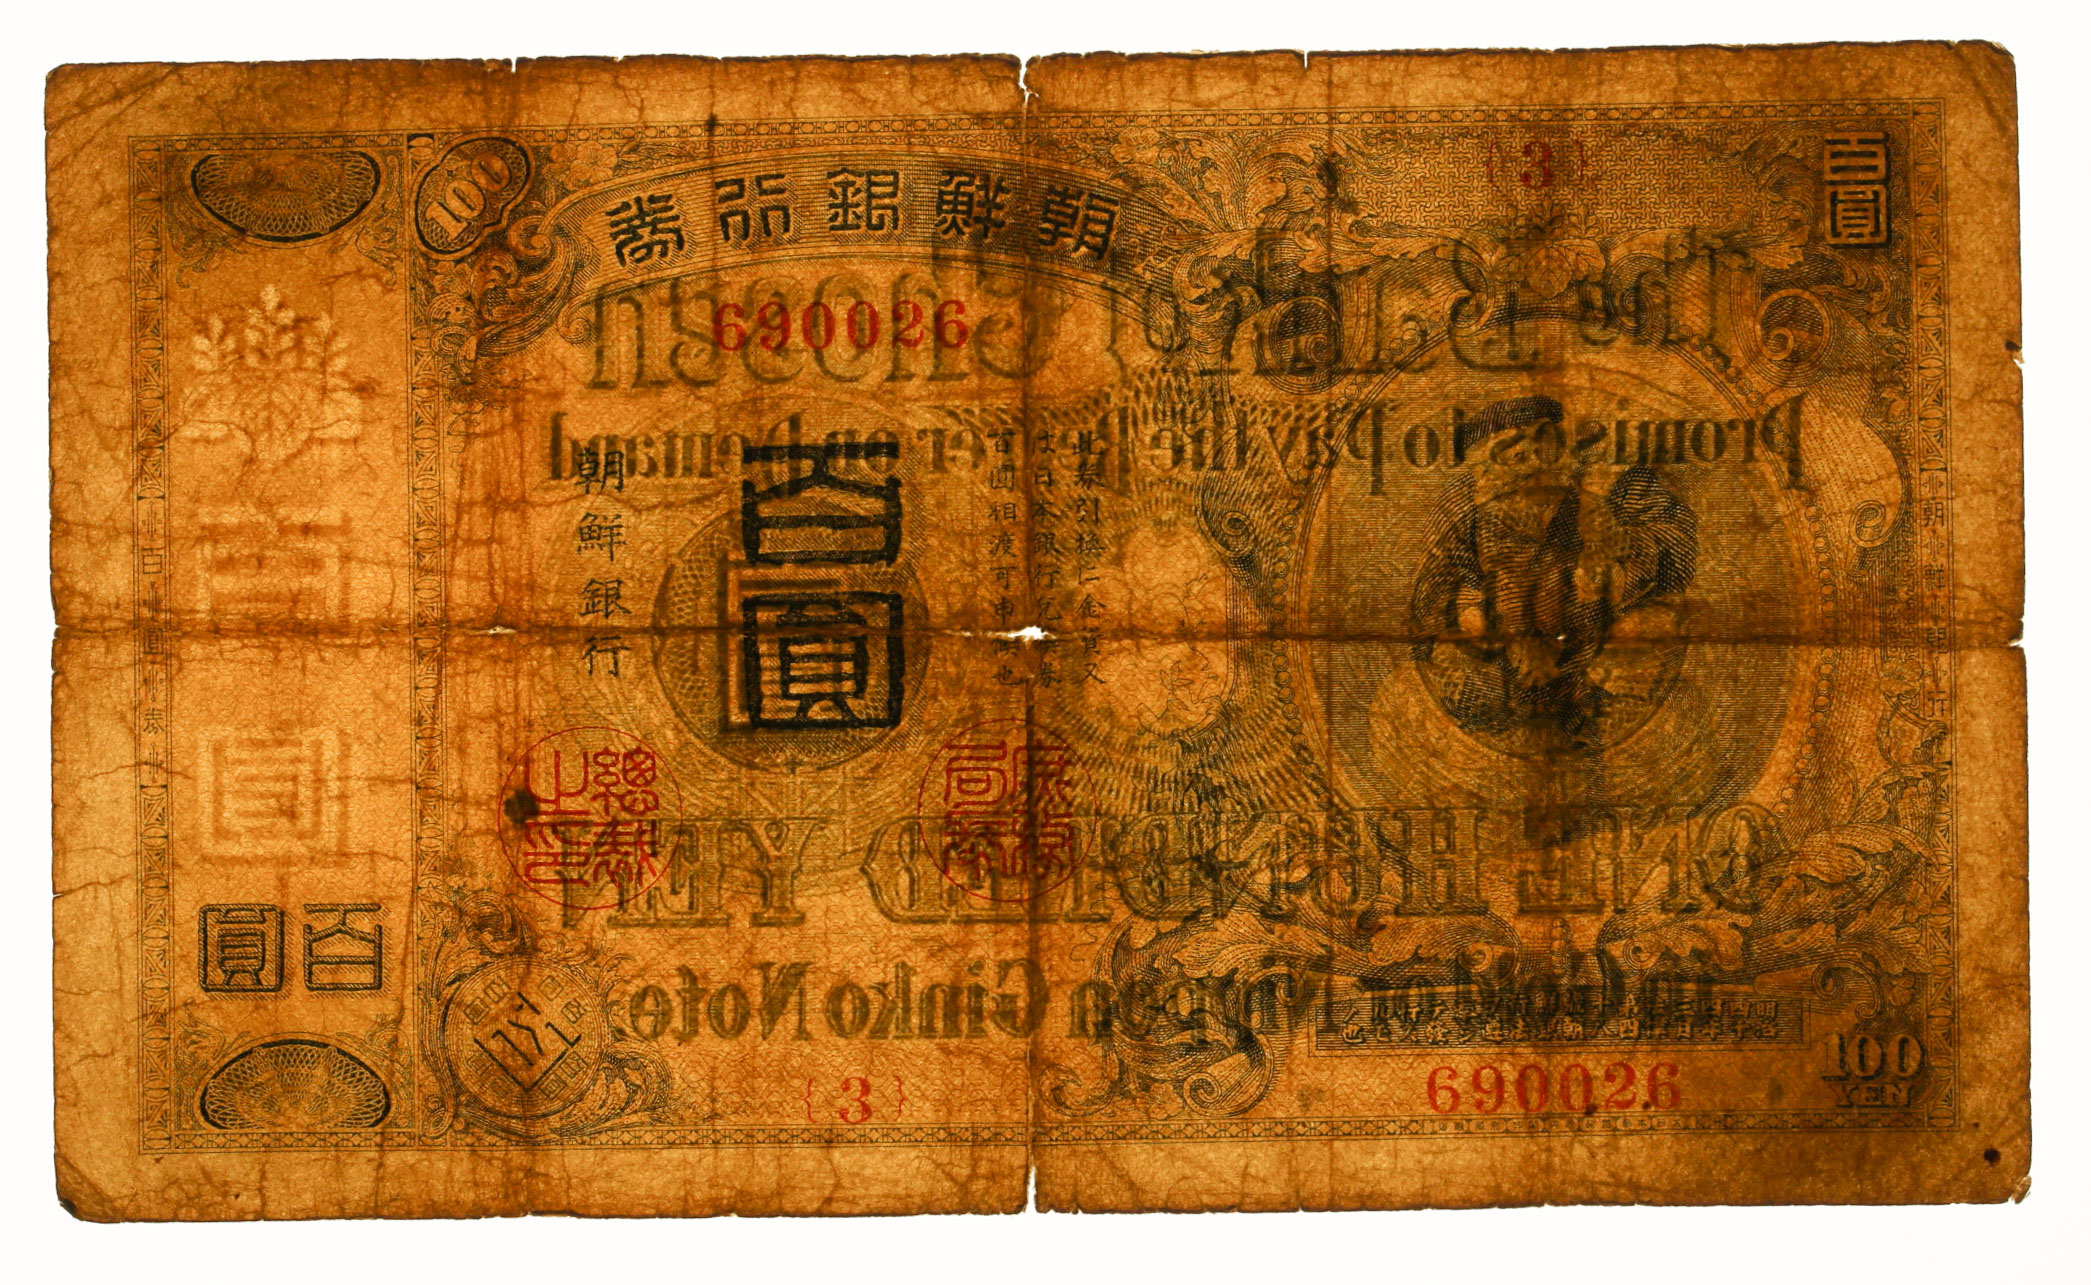 100
朝鮮銀行券
百圓
{3}
690026
The Bank of Chosen
Promises to Pay the Bearer on Demand
此券引換仁金貨又
は日本銀行兌換券
百圓相渡可申候也
百圓
朝鮮銀行
百圓
總裁之印
ONE HUNDRED YEN
in Gold or Nippon Ginko Note.
百圓
{3}
690026
100
YEN